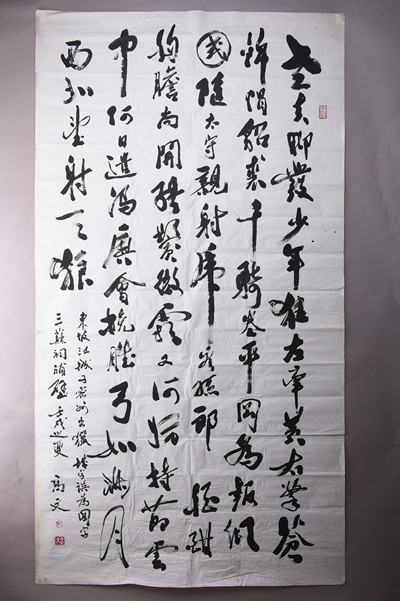 老夫聊發少年狂左牽黃右擎蒼
錦帽貂裘千騎卷平岡為報傾
國隨太守親射虎看孫郎酒酣
胸膽尚開張鬢微霜又何妨持節雲
中何日遣馮唐會挽雕弓如滿月
西北望射天狼
東坡江城子密州出獵 城字誤為國字
三蘇祠補壁 壬戌之夏 高文